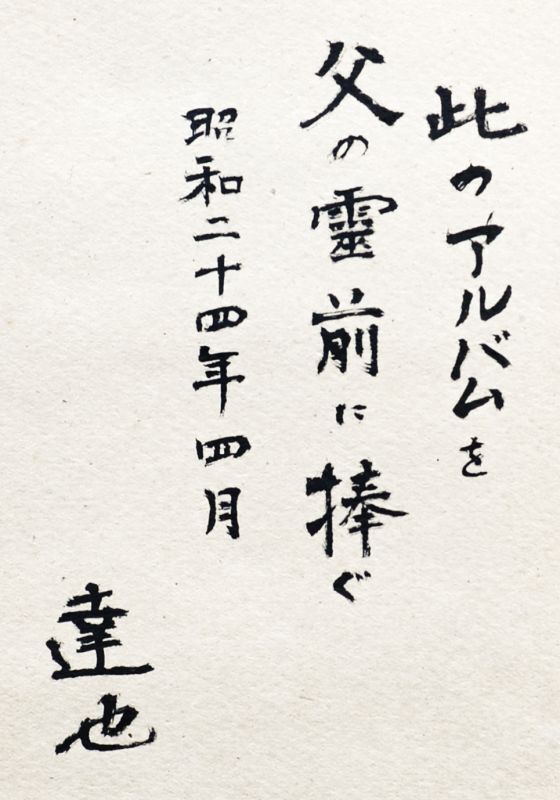 此のアルバムを
父の靈前に捧ぐ
昭和二十四年四月
達也